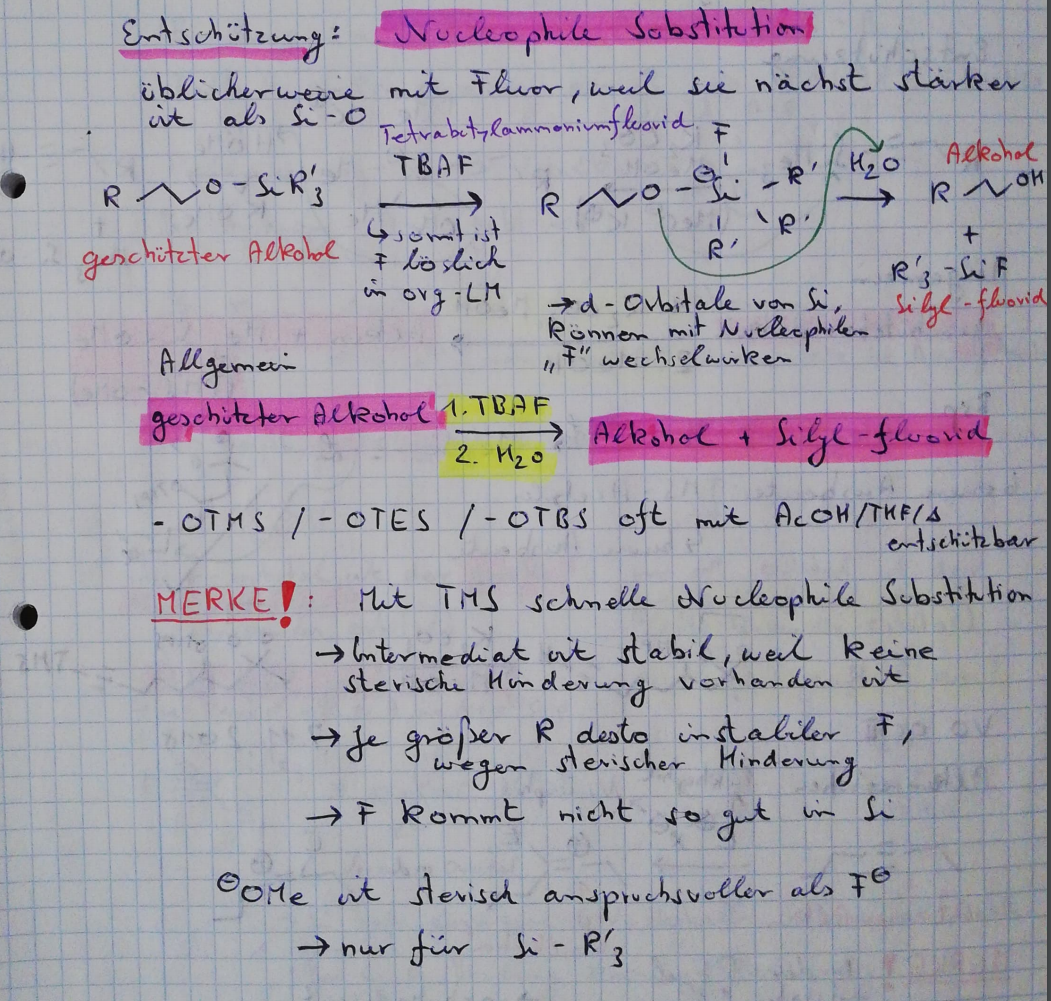 Entschützung: Nucleophile Substitution
üblicherweise mit Fluor, weil sie nächst stärker
ist als Si-O
Tetrabutylammoniumfluorid
TBAF
R O-SiR'3
geschützter Alkohol
↳ somit ist
F löslich
in org-LM
F
R O - ⊖Si - R'
R'
R'
H2O
→ d-Orbitale von Si,
können mit Nucleophilen
„F" wechselwirken
Alkohol
R OH
+
R'3-SiF
Silyl-fluorid
Allgemein
geschützter Alkohol 1. TBAF → Alkohol + Silyl-fluorid
2. H2O
- OTMS /- OTES /- OTBS oft mit AcOH/THF/Δ
entschützbar
MERKE!: Mit TMS schnelle Nucleophile Substitution
→ Intermediat ist stabil, weil keine
sterische Hinderung vorhanden ist
→ Je größer R desto instabiler F,
wegen sterischer Hinderung
→ F kommt nicht so gut in Si
⊖OMe ist sterisch anspruchsvoller als F⊖
→ nur für Si - R'3